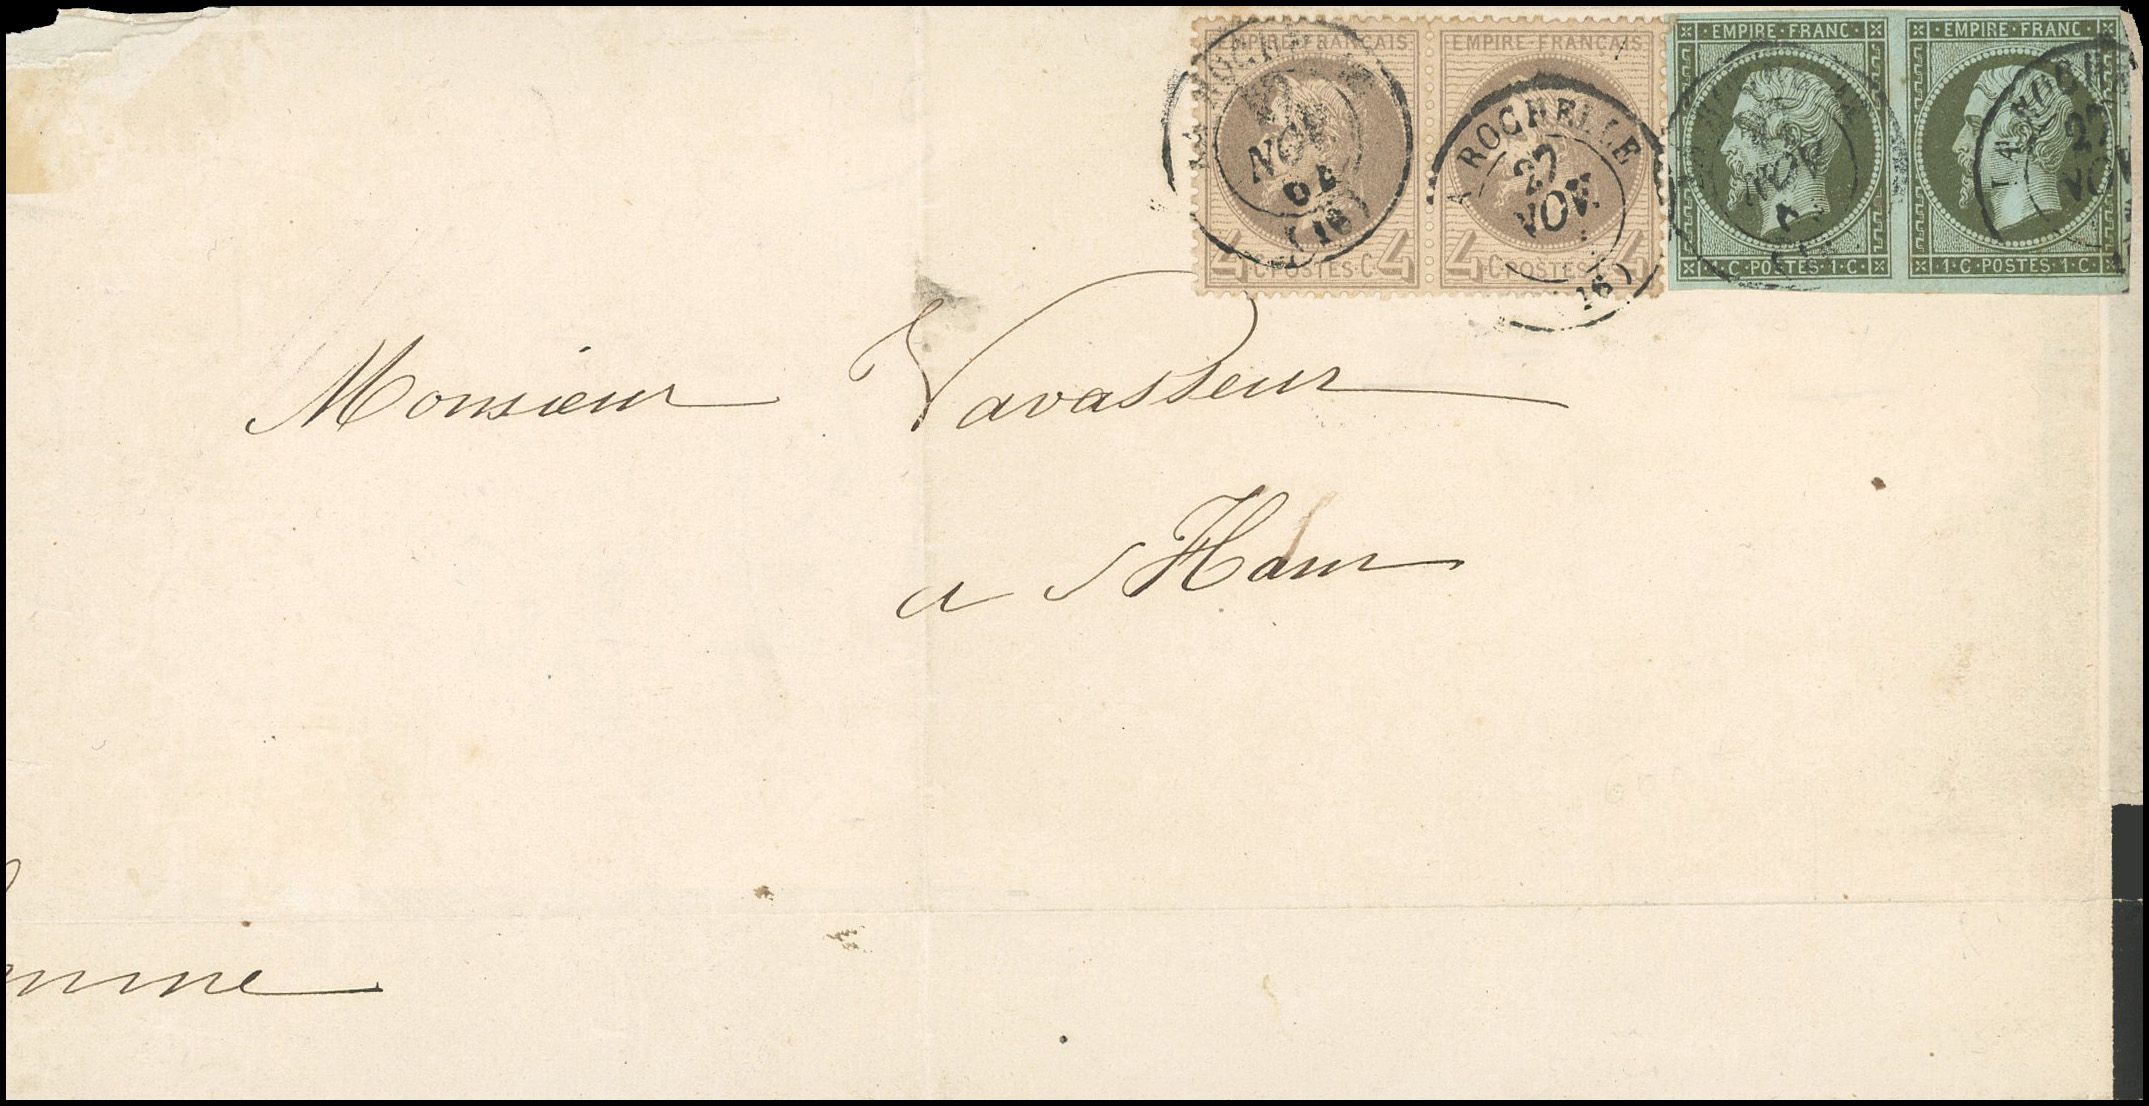 EMPIRE FRANÇAIS EMPIRE FRANÇAIS
4 C POSTES C 4 4 C POSTES 4
· EMPIRE · FRANC · · EMPIRE · FRANC ·
· 1 · C · POSTES · 1 · C · · 1 · C · POSTES · 1 · C ·
NOV
(16)
LA ROCHELLE
27
NOV.
(16)
NOV
LA ROCHE
27
NOV
Monsieur Vavasseur
a Ham
mme